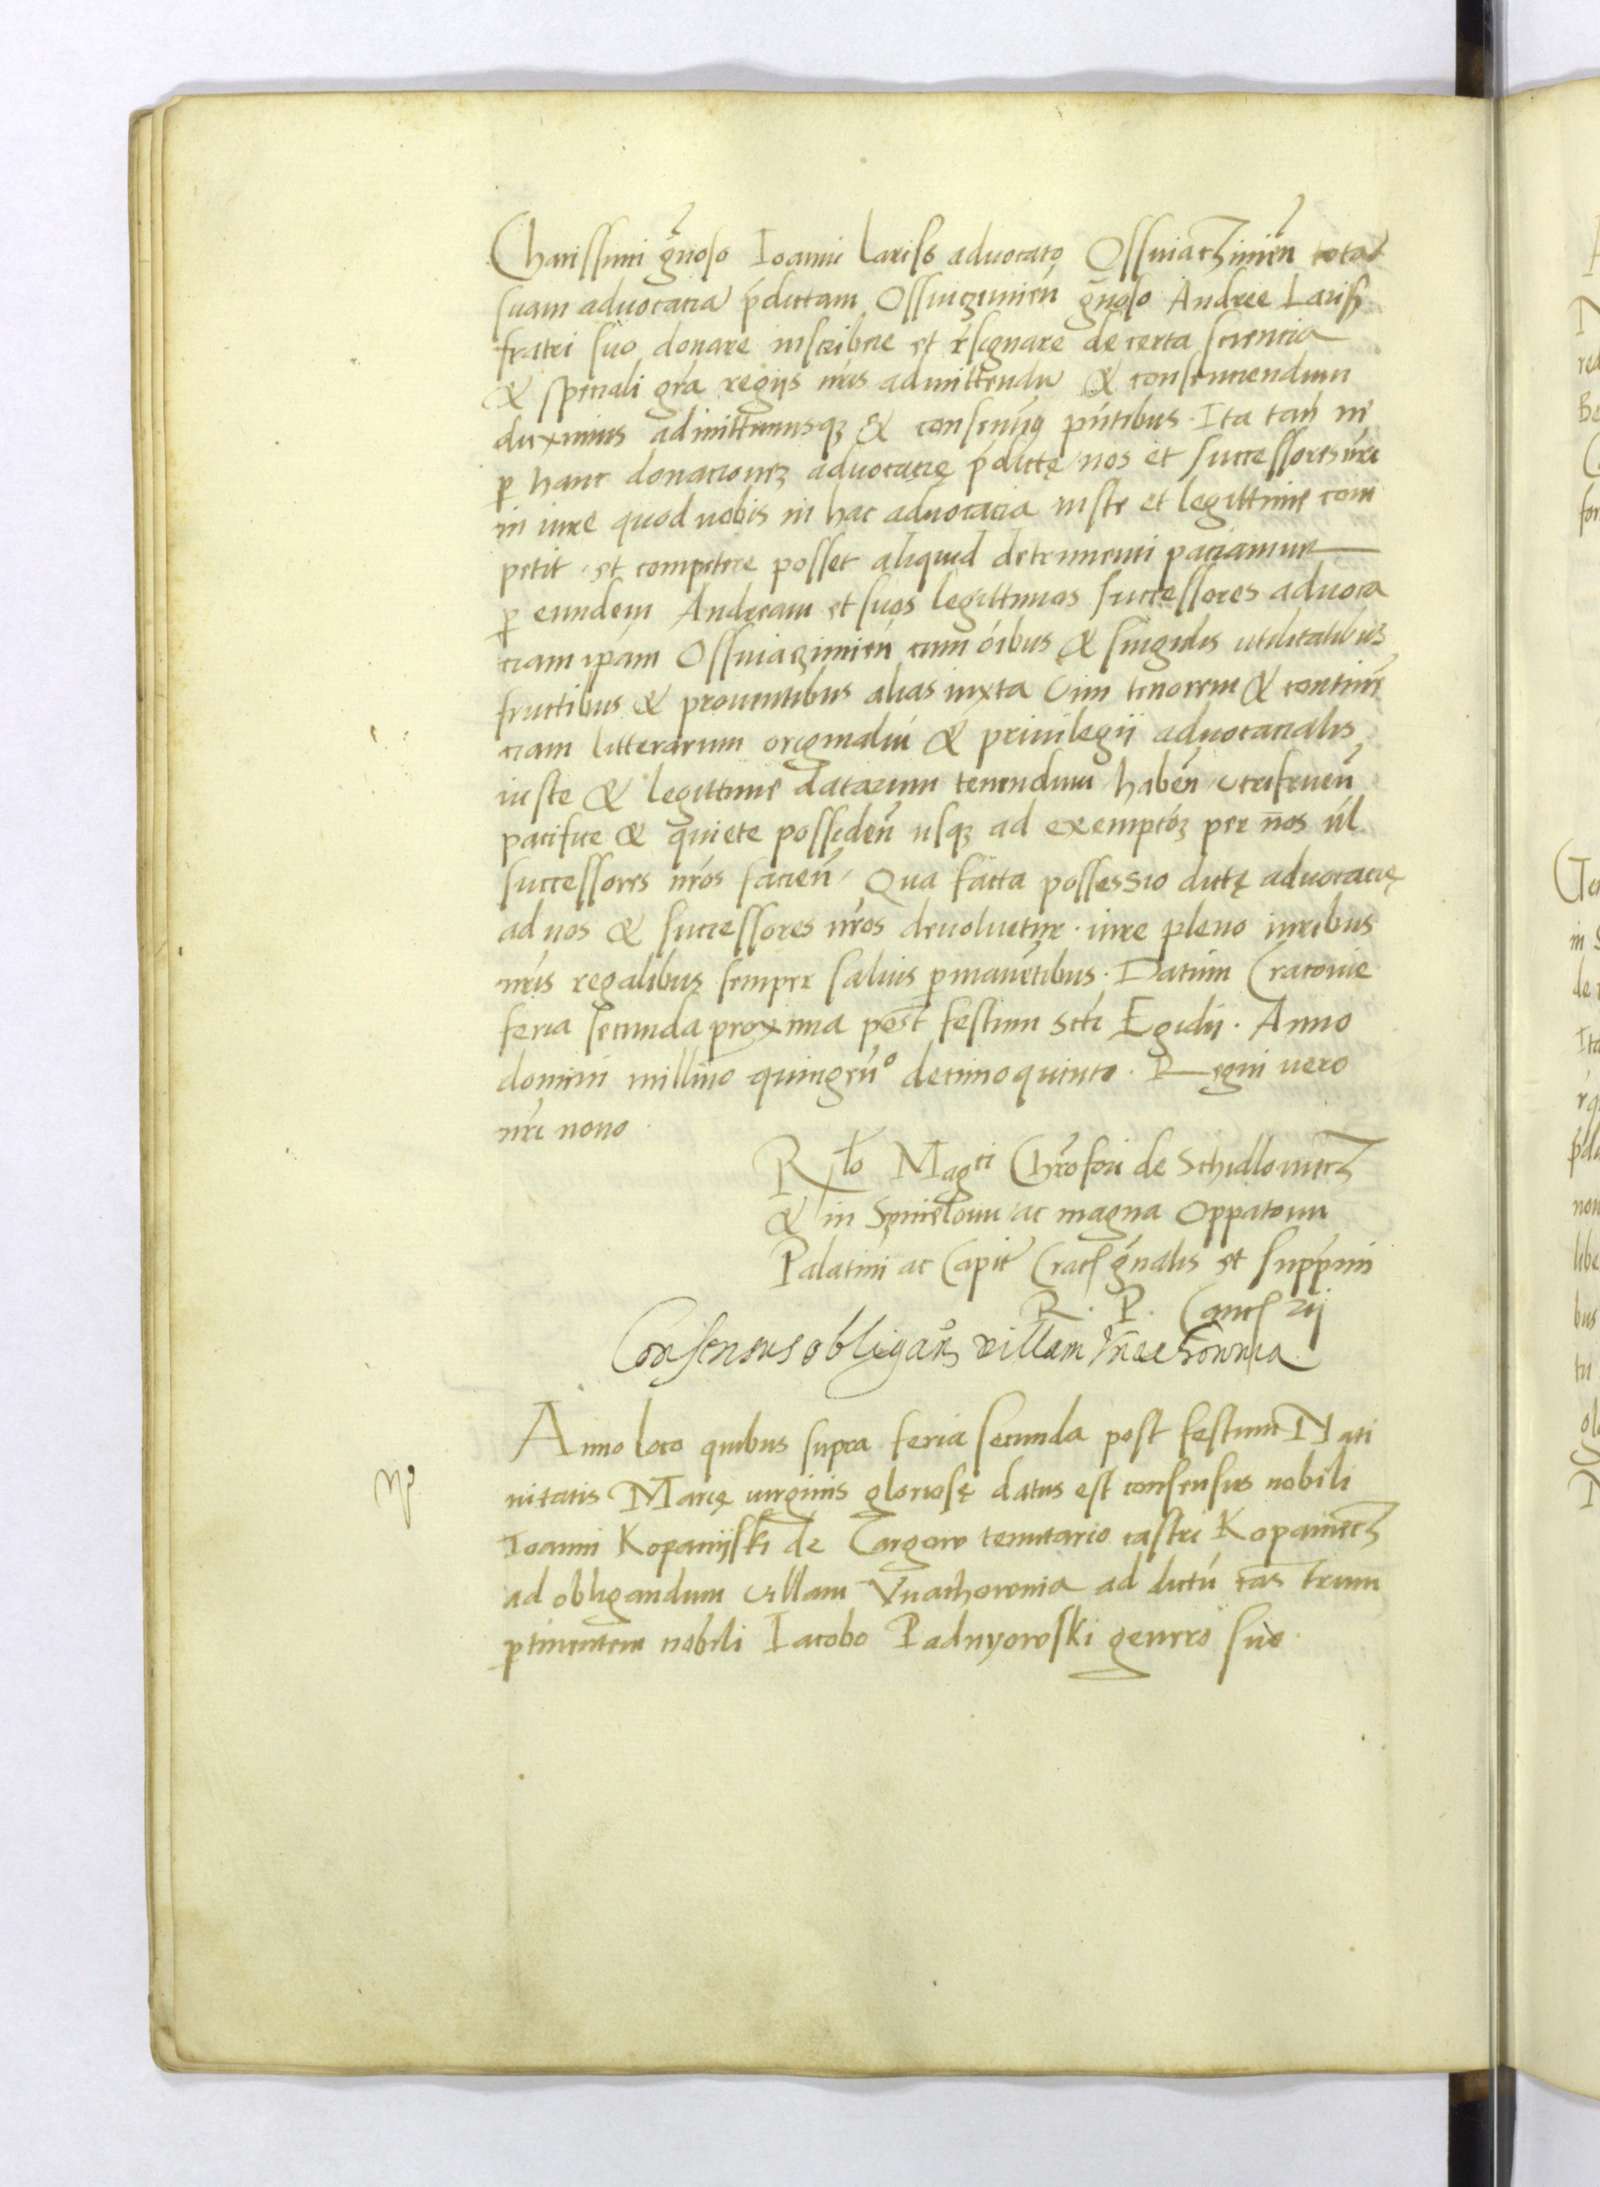 Charissimi gnoso Ioanni Lariss advocato Ossviaczimien̄ totā
suam advocaciā p̄dictam Ossviaczimień gnoso Andree Larisz
fratri suo donare inscribere et rsignare de certa sciencia
& spetiali gra regijs nris admittendū & consenciendum
duximus admittimusqȝ & consentimȝ pn̄tibus. Ita tan̄ ne
p hanc donacionez advocacię p̄dictę nos et successores nri
in iure quod nobis in hac advocacia iuste et legittime com
petit et competere posset aliquid detrimenti paciamur
p eundem Andream et suos legittimos successores advoca
ciam ipām Ossviaczimień cum oibus & singulis utilitatibus
fructibus & proventibus alias iuxta vim tenorem & continēn
ciam litterarum originaliū & privilegii advocacialis
iuste & legittime datarum tenendum habeñ utrifrueñ
pacifice & quiete possideñ usqȝ ad exempcōȝ per nos úl
successores nros facień. Qua facta possessio dictę advocacię
ad nos & successores nros devoluetur. iure pleno iuribus
nris regalibus semper salvis pmanētibus. Datum Cracovie
feria secunda proxima post festum scti Egidii. Anno
domini millmo quingenᵒ decimoquinto. Regni vero
nri nono
Rlo Magci Chrofori de Schidlowiecz
& in Cymielow ac magna Oppatow
Palatini ac Capit Crac gnalis et suppmi
R. P. Canc rij
Consensus obligan̄ villam Vnachownia
Anno loco quibus supra feria secunda post festum Nati
vitatis Marię virginis gloriosę datus est consensus nobili
Ioanni Kopanijski de Targow tenutario castri Kopaniecz
ad obligandum villam Vnachownia ad dictū castrum
ptinentem nobili Iacobo Padnyowski genero suo